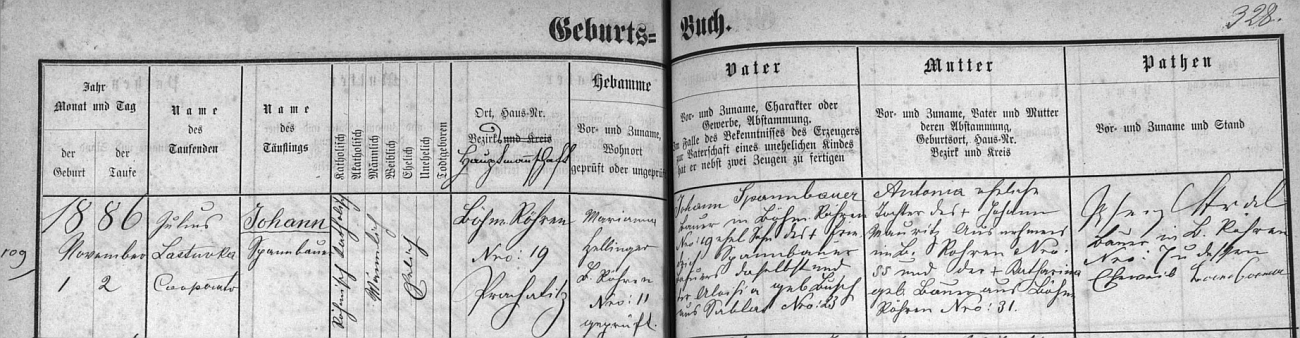 Geburts= Buch.
328.
Jahr
Monat und Tag
der Geburt
der Taufe
Name
des
Taufenden
Name
des
Täuflings
Katholisch
Akatholisch
Männlich
Weiblich
Ehelich
Unehelich
Todtgeboren
Ort, Haus-Nr.
Bezirk und Kreis
Hauptmannschaft
Hebamme
Vor- und Zuname,
Wohnort
geprüft oder ungeprüft
Vater
Vor- und Zuname, Charakter oder
Gewerbe, Abstammung.
Im Falle des Bekenntnisses des Erzeugers
zur Vaterschaft eines unehelichen Kindes
hat er nebst zwei Zeugen zu fertigen
Mutter
Vor- und Zuname, Vater und Mutter
deren Abstammung,
Geburtsort, Haus-Nr.
Bezirk und Kreis
Pathen
Vor- und Zuname und Stand
109
1886
November
1 2
Julius
Lastuvka
Cooperator
Johann
Spannbauer
Römisch katholisch
Männlich
Ehelich
Böhm. Röhren
Nro: 19
Prachatitz
Marianna
Hellinger
B. Röhren
Nro: 11
geprüft.
Johann Spannbauer
Bauer in Böhm. Röhren
Nro: 19 ehel. Sohn des +
Spannbauer
daselbst und
der Aloisia geb. Busch
aus Sablat Nro: 23
Antonia eheliche
Tochter des + Johann
Mauritz Ausnehmers
in B. Röhren Nro:
55 und der + Katharina
geb. Bauer aus Böhm.
Röhren Nro: 31.
Bauer in B. Röhren
Nro:
Eheweib